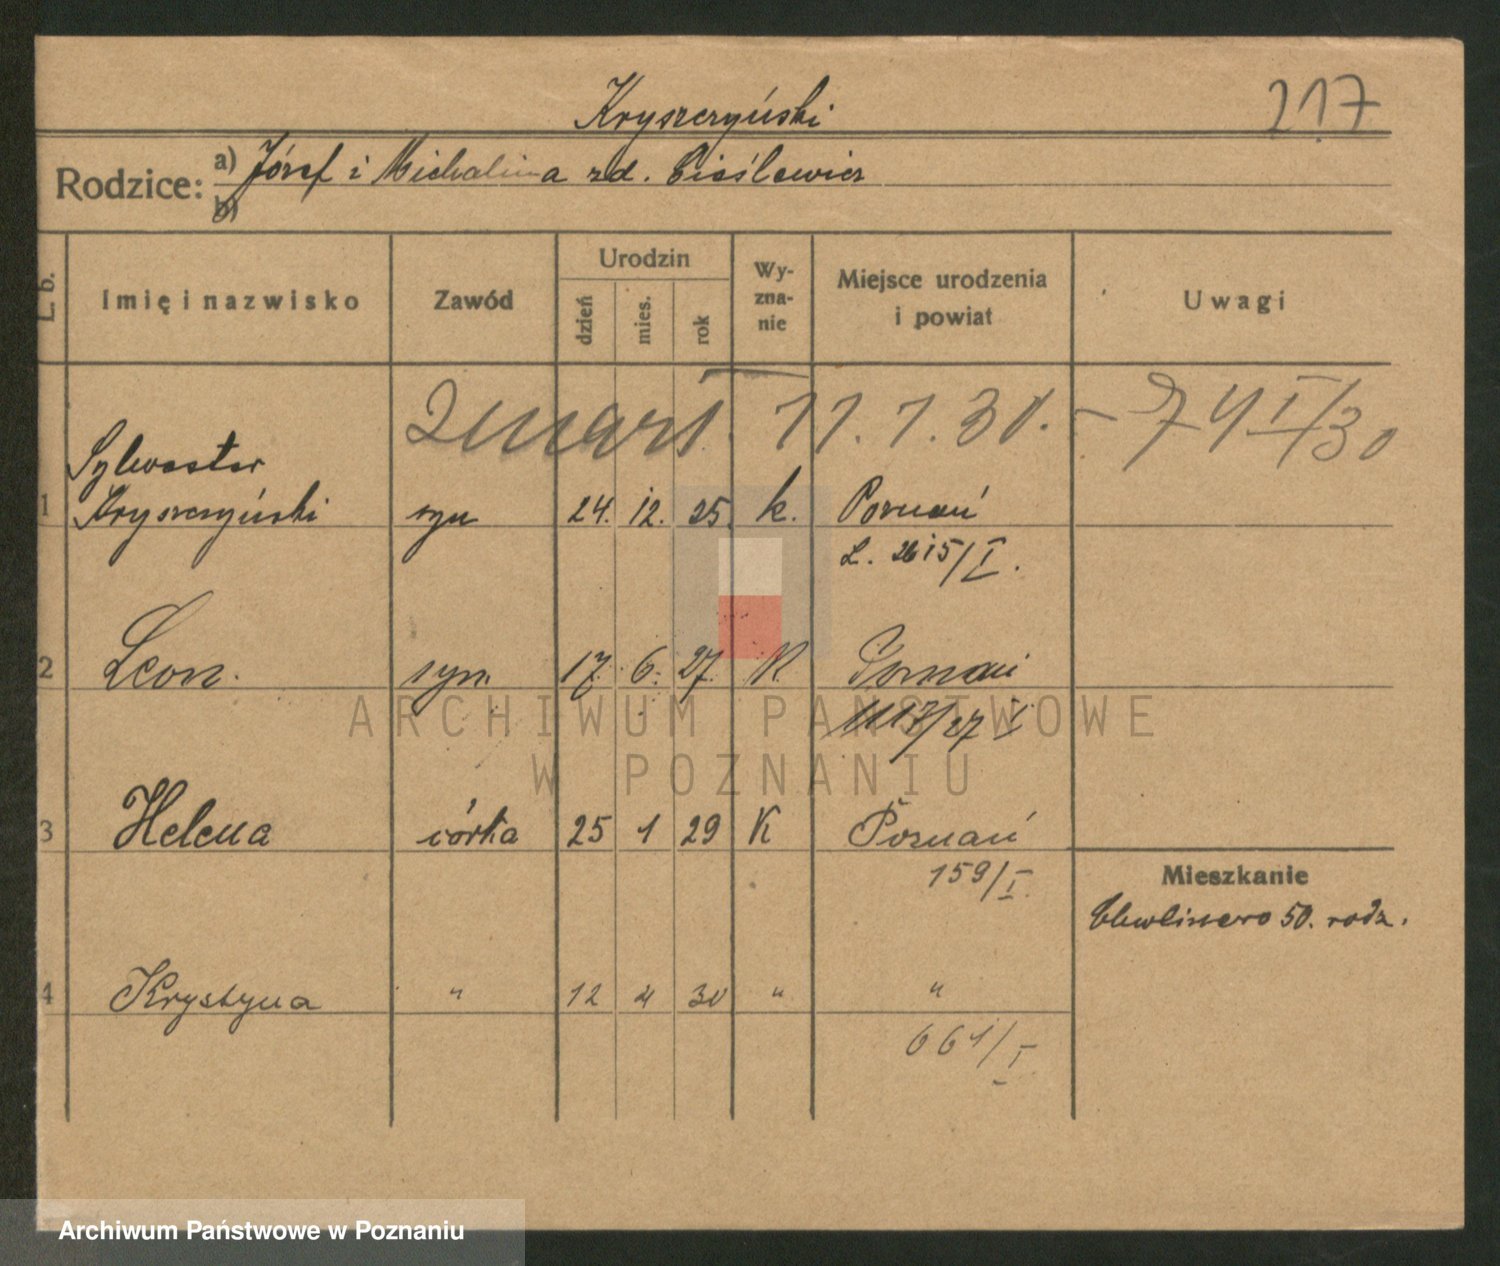 Kryszczyński
217
Rodzice: a) Józef i Michalina zd. Cieślewicz
b)
L. b.
Imię i nazwisko
Zawód
Urodzin
dzień
mies.
rok
Wy-
zna-
nie
Miejsce urodzenia
i powiat
Uwagi
zmarł. 11.1.30. – 74 I/30
Sylwester
1 Kryszczyński syn 24. 12. 25. k. Poznań
L. 2615/I.
2 Leon. syn. 17. 6. 27. K. Poznań
1117/27 I
3 Helena córka 25 1 29 K Poznań
159/I.
Mieszkanie
50. rodz.
4 Krystyna " 12 4 30 " "
661/I
ARCHIWUM PAŃSTWOWE
W POZNANIU
Archiwum Państwowe w Poznaniu